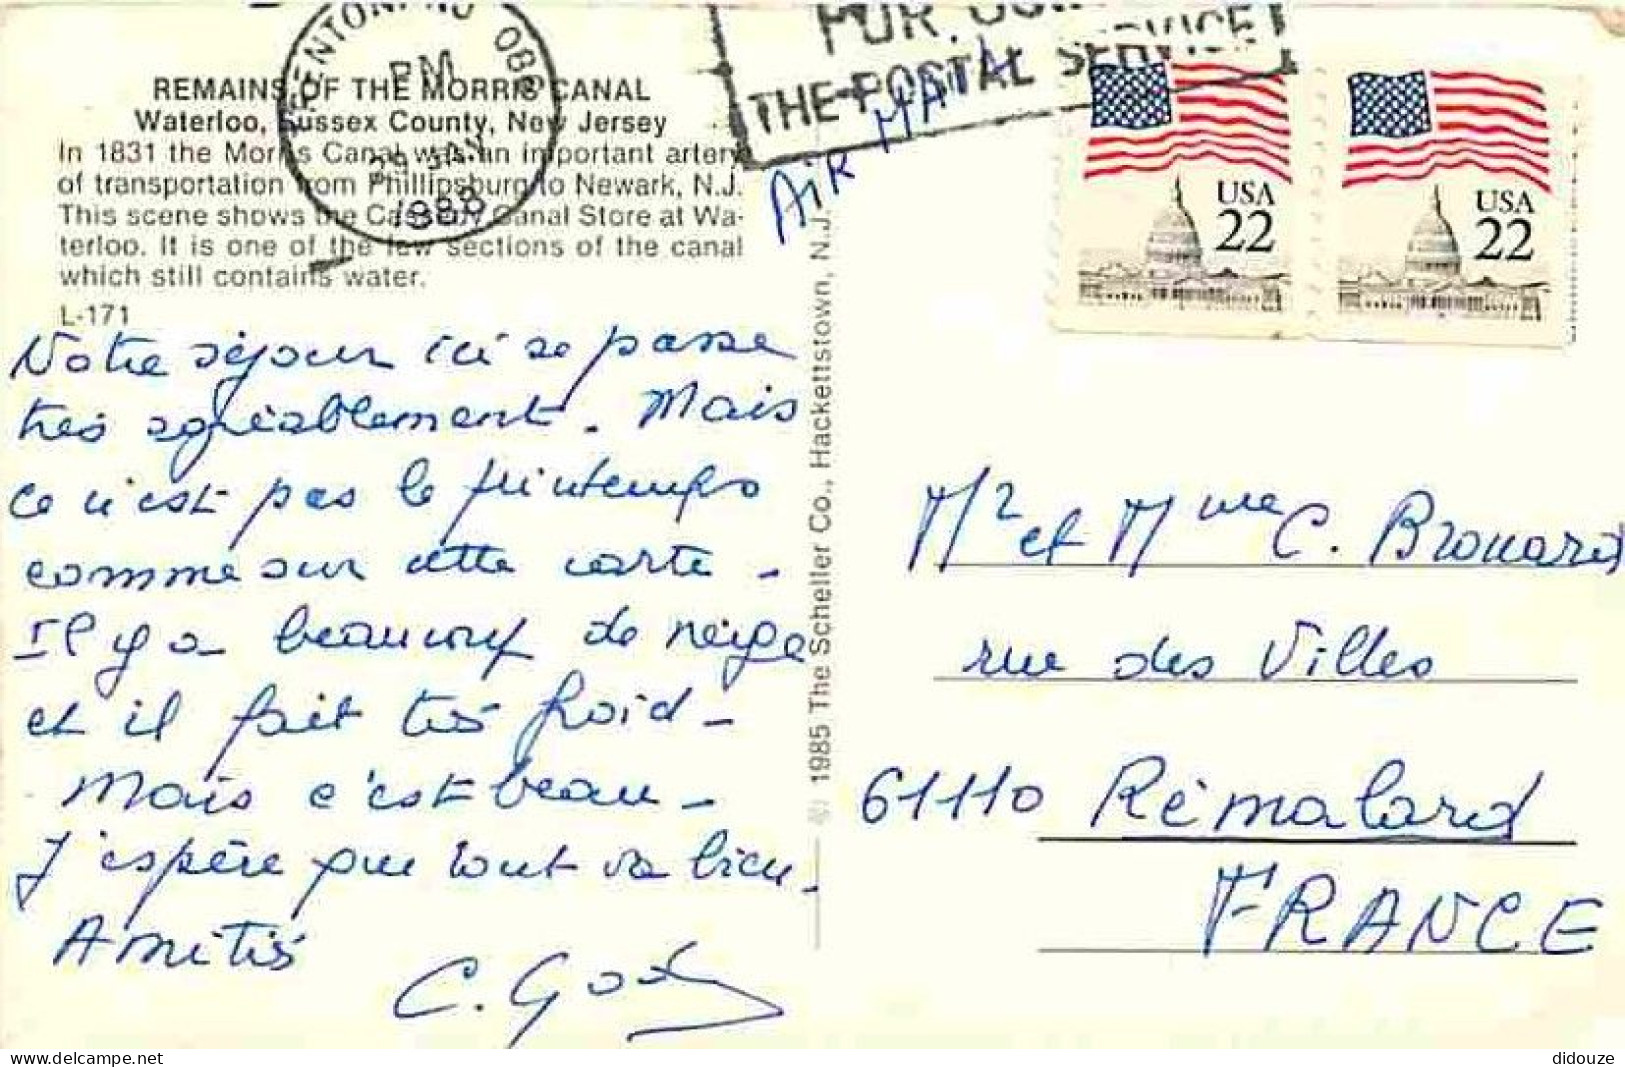 TRENTON, NJ 086
PM
JAN
1988
FOR
THE POSTAL SERVICE
AIR MAIL
REMAINS OF THE MORRIS CANAL
Waterloo, Sussex County, New Jersey
In 1831 the Morris Canal was an important artery
of transportation from Phillipsburg to Newark, N.J.
This scene shows the Cassedy Canal Store at Wa-
terloo. It is one of the few sections of the canal
which still contains water.
L-171
Notre séjour ici se passe
très agréablement. Mais
ce n'est pas le printemps
comme sur cette carte -
Il y a beaucoup de neige
et il fait très froid -
Mais c'est beau -
J'espère que tout va bien -
Amitiés
© 1985 The Scheller Co., Hackettstown, N.J.
USA
22
USA
22
Mr et Mme C. Brouard
rue des Villes
61110 Rémalard
FRANCE
didouze